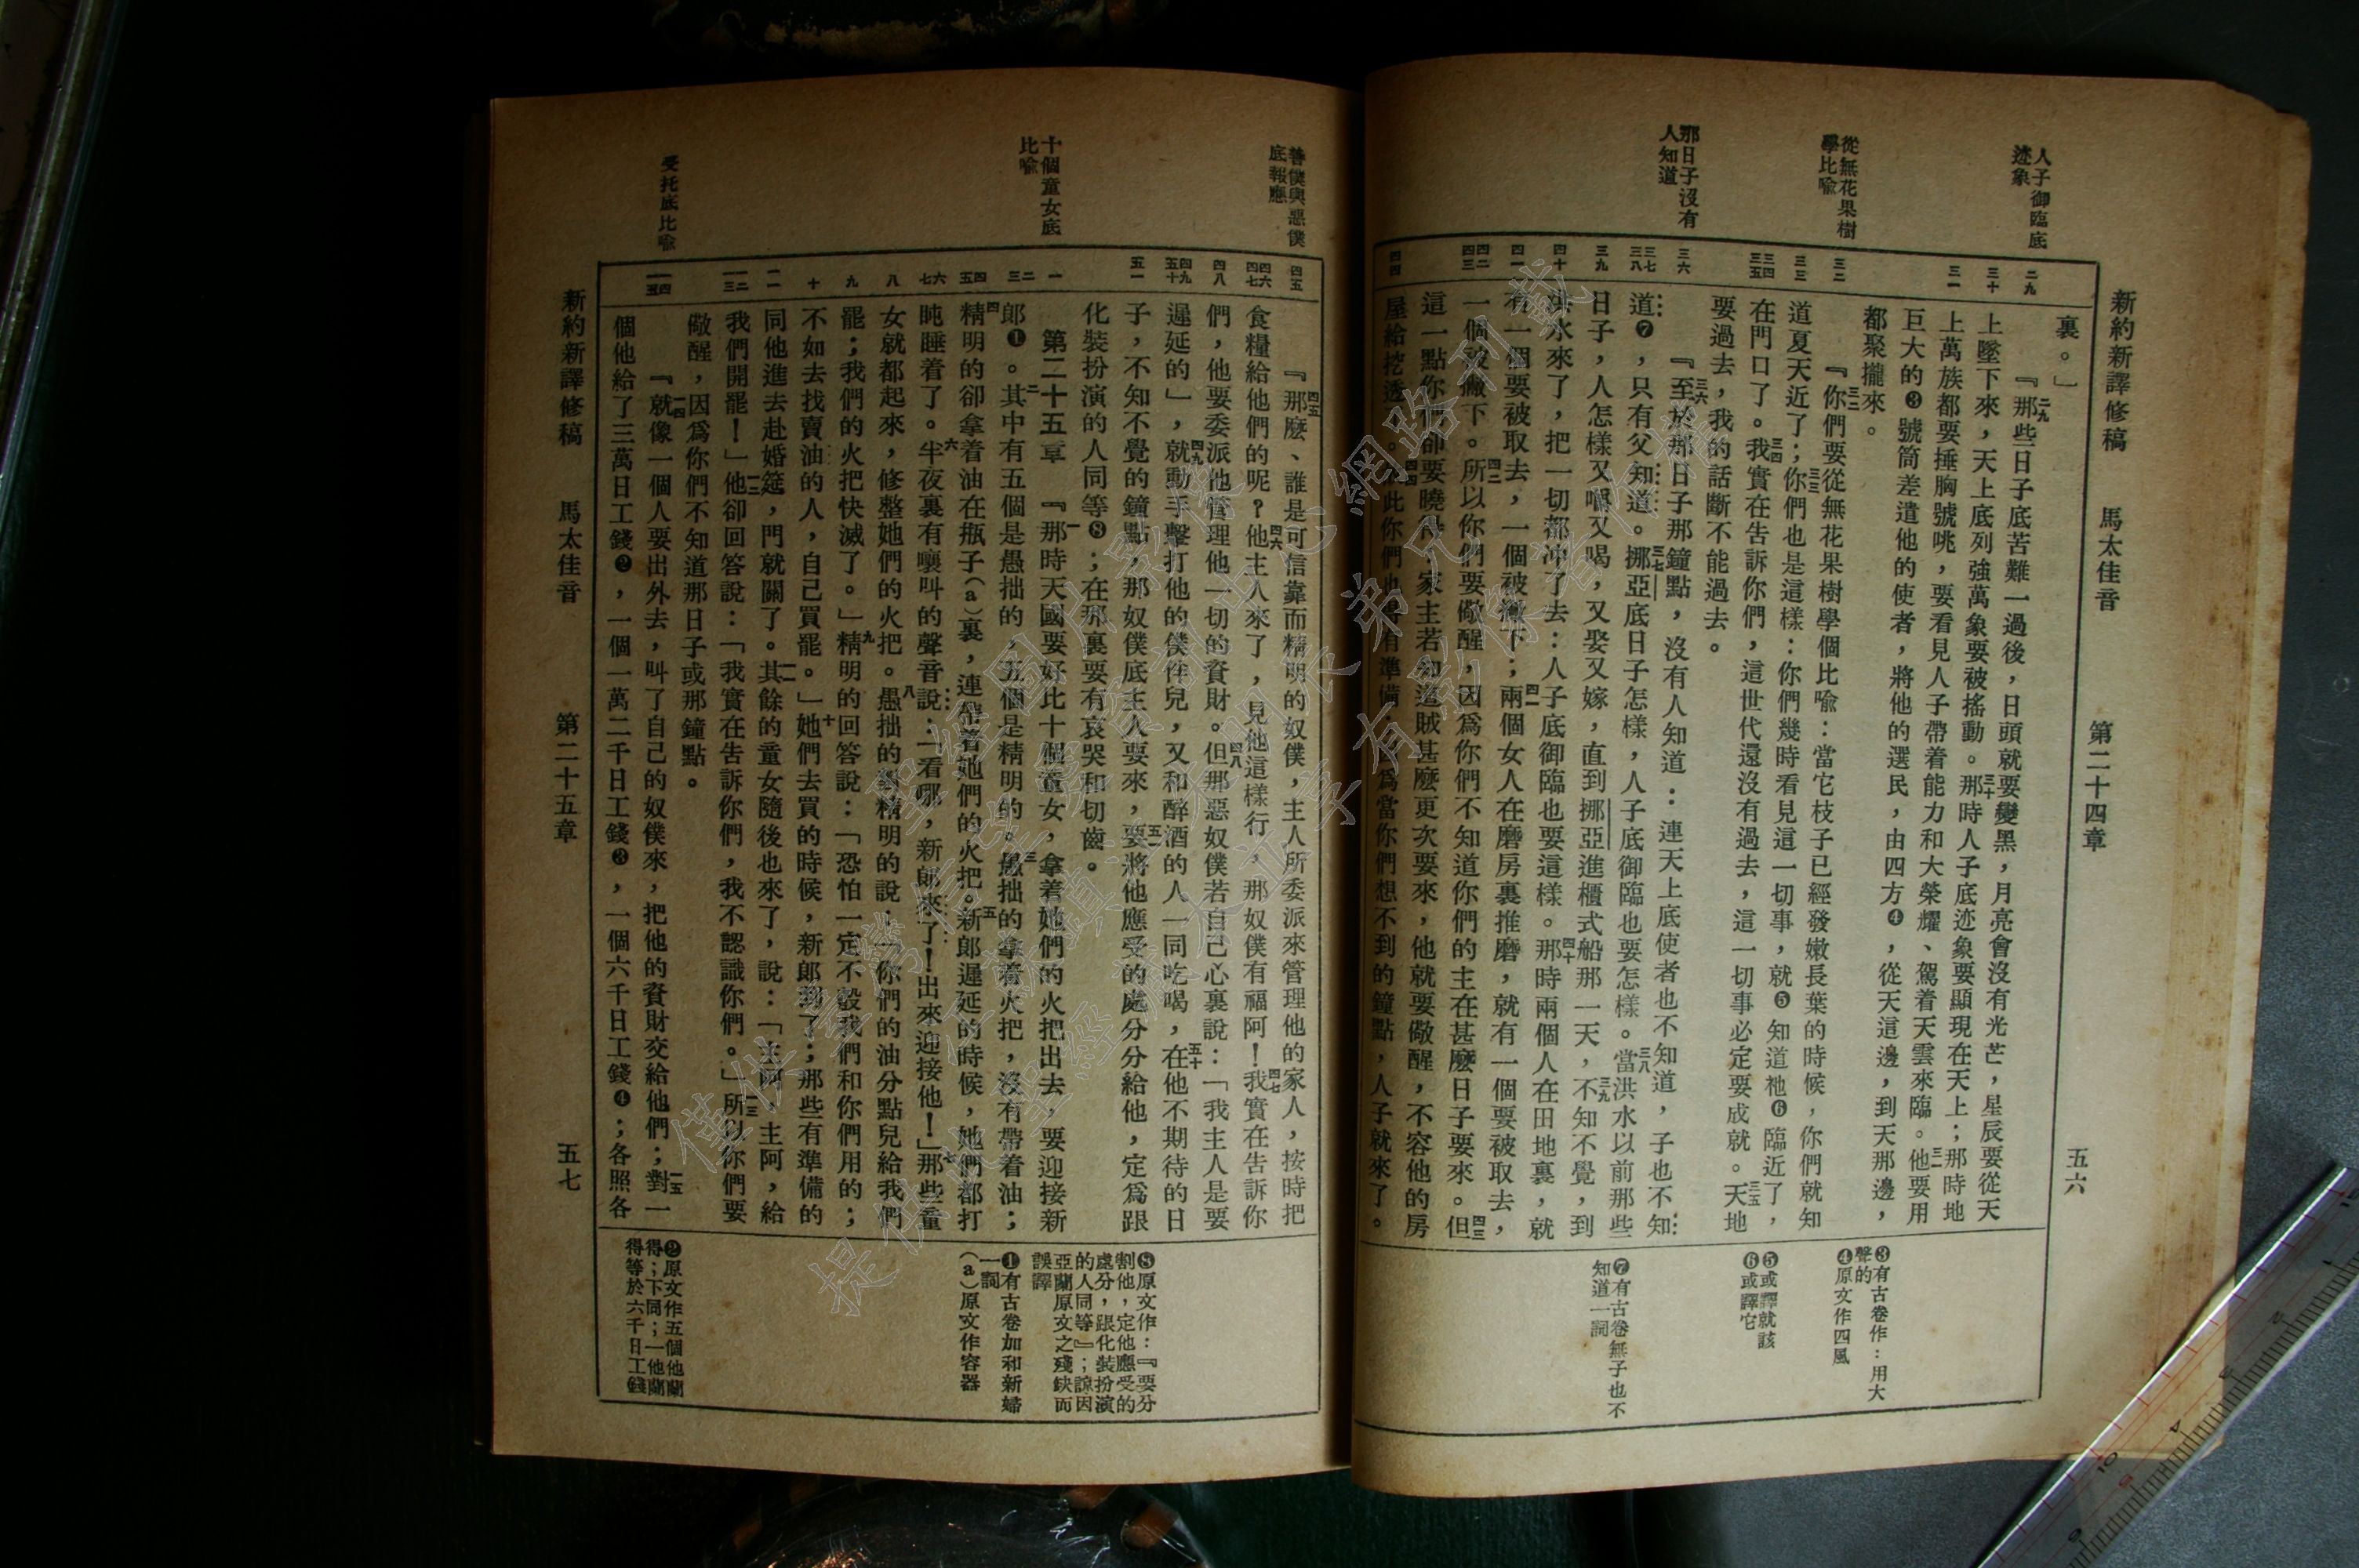 新約新譯修稿　馬太佳音　第二十四章　五六
人子御臨底
迹象
從無花果樹
學比喻
那日子沒有
人知道
二九
三十
三一
三二
三三
三四
三五
三六
三七
三八
三九
四十
四一
四二
四三
四四
裏。」
『二九那些日子底苦難一過後，日頭就要變黑，月亮會沒有光芒，星辰要從天
上墜下來，天上底列強萬象要被搖動。三十那時人子底迹象要顯現在天上；那時地
上萬族都要捶胸號咷，要看見人子帶着能力和大榮耀、駕着天雲來臨。三一他要用
巨大的❸號筒差遣他的使者，將他的選民，由四方❹，從天這邊，到天那邊，
都聚攏來。
『三二你們要從無花果樹學個比喻：當它枝子已經發嫩長葉的時候，你們就知
道夏天近了；三三你們也是這樣：你們幾時看見這一切事，就❺知道祂❻臨近了，
在門口了。三四我實在告訴你們，這世代還沒有過去，這一切事必定要成就。三五天地
要過去，我的話斷不能過去。
『三六至於那日子那鐘點，沒有人知道：連天上底使者也不知道，子也不知
道❼，只有父知道。三七挪亞底日子怎樣，人子底御臨也要怎樣。三八當洪水以前那些
日子，人怎樣又嚼又喝，又娶又嫁，直到挪亞進櫃式船那一天，三九不知不覺，到
洪水來了，把一切都沖了去：人子底御臨也要這樣。四十那時兩個人在田地裏，就
有一個要被取去，一個被撇下；四一兩個女人在磨房裏推磨，就有一個要被取去，
一個被撇下。四二所以你們要儆醒，因爲你們不知道你們的主在甚麼日子要來。四三但
這一點你們卻要曉得：家主若知道賊甚麼更次要來，他就要儆醒，不容他的房
屋給挖透。四四因此你們也要有準備，因爲當你們想不到的鐘點，人子就來了。
❸有古卷作：用大
聲的
❹原文作四風
❺或譯就該
❻或譯它
❼有古卷無子也不
知道一詞
善僕與惡僕
底報應
十個童女底
比喻
受托底比喻
四五
四六
四七
四八
四九
五十
五一
一
二
三
四
五
六
七
八
九
十
一一
一二
一三
一四
一五
『四五那麼、誰是可信靠而精明的奴僕，主人所委派來管理他的家人，按時把
食糧給他們的呢？四六他主人來了，見他這樣行，那奴僕有福阿！四七我實在告訴你
們，他要委派他管理他一切的資財。四八但那惡奴僕若自己心裏說：「我主人是要
遲延的」，四九就動手擊打他的僕伴兒，又和醉酒的人一同吃喝，五十在他不期待的日
子，不知不覺的鐘點，那奴僕底主人要來，五一要將他應受的處分分給他，定爲跟
化裝扮演的人同等❽；在那裏要有哀哭和切齒。
第二十五章　『一那時天國要好比十個童女，拿着她們的火把出去，要迎接新
郎❶。二其中有五個是愚拙的，五個是精明的。三愚拙的拿着火把，沒有帶着油；
四精明的卻拿着油在瓶子（a）裏，連帶着她們的火把。五新郎遲延的時候，她們都打
盹睡着了。六半夜裏有嚷叫的聲音說：「看哪，新郎來了！出來迎接他！」七那些童
女就都起來，修整她們的火把。八愚拙的對精明的說：「你們的油分點兒給我們
罷；我們的火把快滅了。」九精明的回答說：「恐怕一定不彀我們和你們用的；
不如去找賣油的人，自己買罷。」十她們去買的時候，新郎到了；那些有準備的
同他進去赴婚筵，門就關了。一一其餘的童女隨後也來了，說：「主阿，主阿，給
我們開罷！」一二他卻回答說：「我實在告訴你們，我不認識你們。」一三所以你們要
儆醒，因爲你們不知道那日子或那鐘點。
『一四就像一個人要出外去，叫了自己的奴僕來，把他的資財交給他們；一五對一
個他給了三萬日工錢❷，一個一萬二千日工錢❸，一個六千日工錢❹；各照各
❽原文作：『要分
割他，定他應受的
處分，跟化裝扮演
的人同等』；諒因
亞蘭原文之殘缺而
誤譯
❶有古卷加和新婦
一詞
（a）原文作容器
❷原文作五個他蘭
得；下同；一他蘭
得等於六千日工錢
新約新譯修稿　馬太佳音　第二十五章　五七